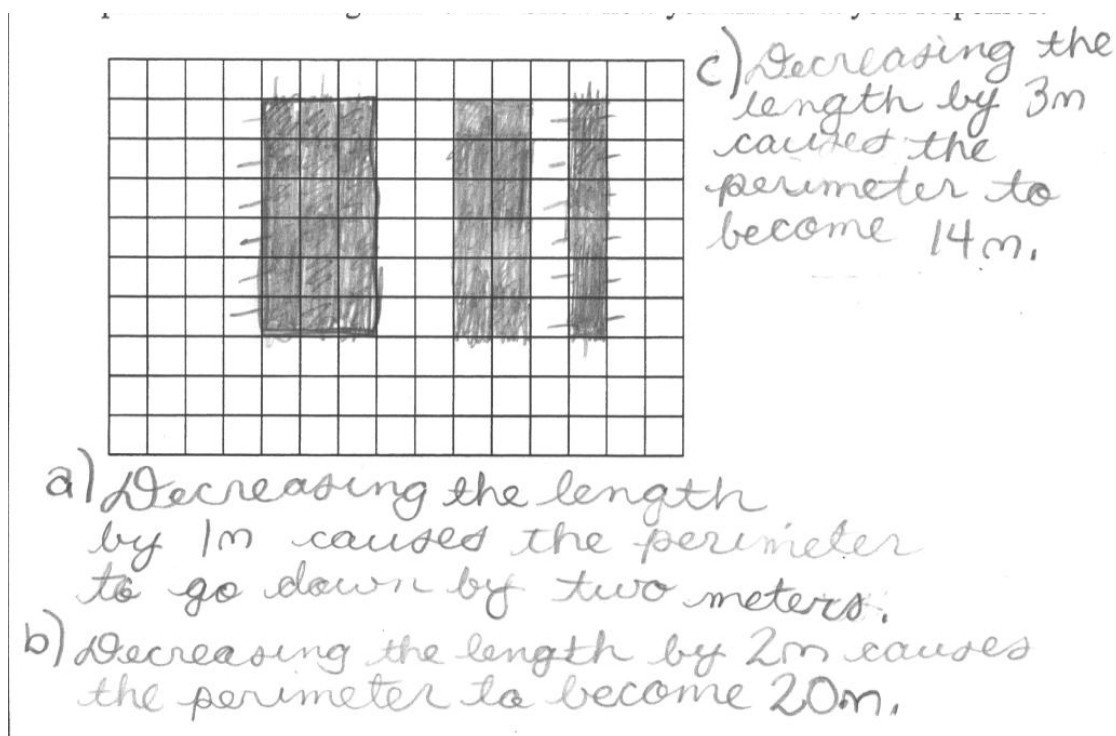 c) Decreasing the
length by 3m
causes the
perimeter to
become 14m.
a) Decreasing the length
by 1m causes the perimeter
to go down by two meters.
b) Decreasing the length by 2m causes
the perimeter to become 20m.